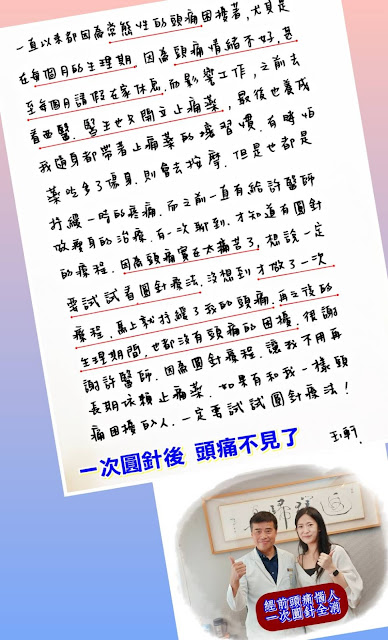 一直以來都因為常態性的頭痛困擾著，尤其是
在每個月的生理期，因為頭痛情緒不好，甚
至每個月請假在家休息，而影響工作，之前去
看西醫，醫生也只開立止痛藥，最後也養成
我隨身都帶著止痛藥的壞習慣，有時怕
藥吃多了傷身，則會去按摩，但是也都是
抒緩一時的疼痛，而之前一直有給許醫師
做瘦身的治療，有一次聊到，才知道有圓針
的療程，因為頭痛實在太痛苦了，想說一定
要試試看圓針療法，沒想到才做了一次
療程，馬上就抒緩了我的頭痛，再之後的
生理期間，也都沒有頭痛的困擾，很謝
謝許醫師，因為圓針療程，讓我不用再
長期依賴止痛藥，如果有和我一樣頭
痛困擾的人，一定要試試圓針療法！
玉軒
一次圓針後 頭痛不見了
經前頭痛惱人
一次圓針全消